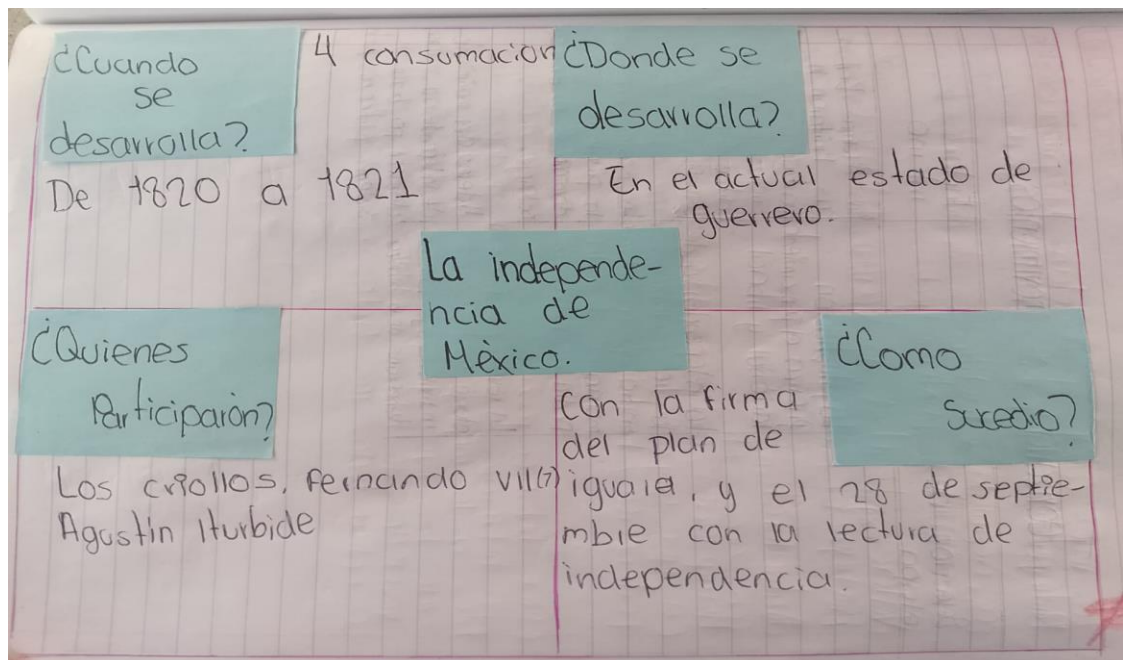 ¿Cuando
se
desarrolla?
4 consumacion
De 1820 a 1821
¿Donde se
desarrolla?
En el actual estado de
guerrero.
La independe-
ncia de
Mèxico.
¿Quienes
Participaron?
Los criollos, fernando VII(7)
Agustin Iturbide
¿Como
Sucedio?
con la firma
del plan de
iguala, y el 28 de septie-
mbre con la lectura de
independencia.